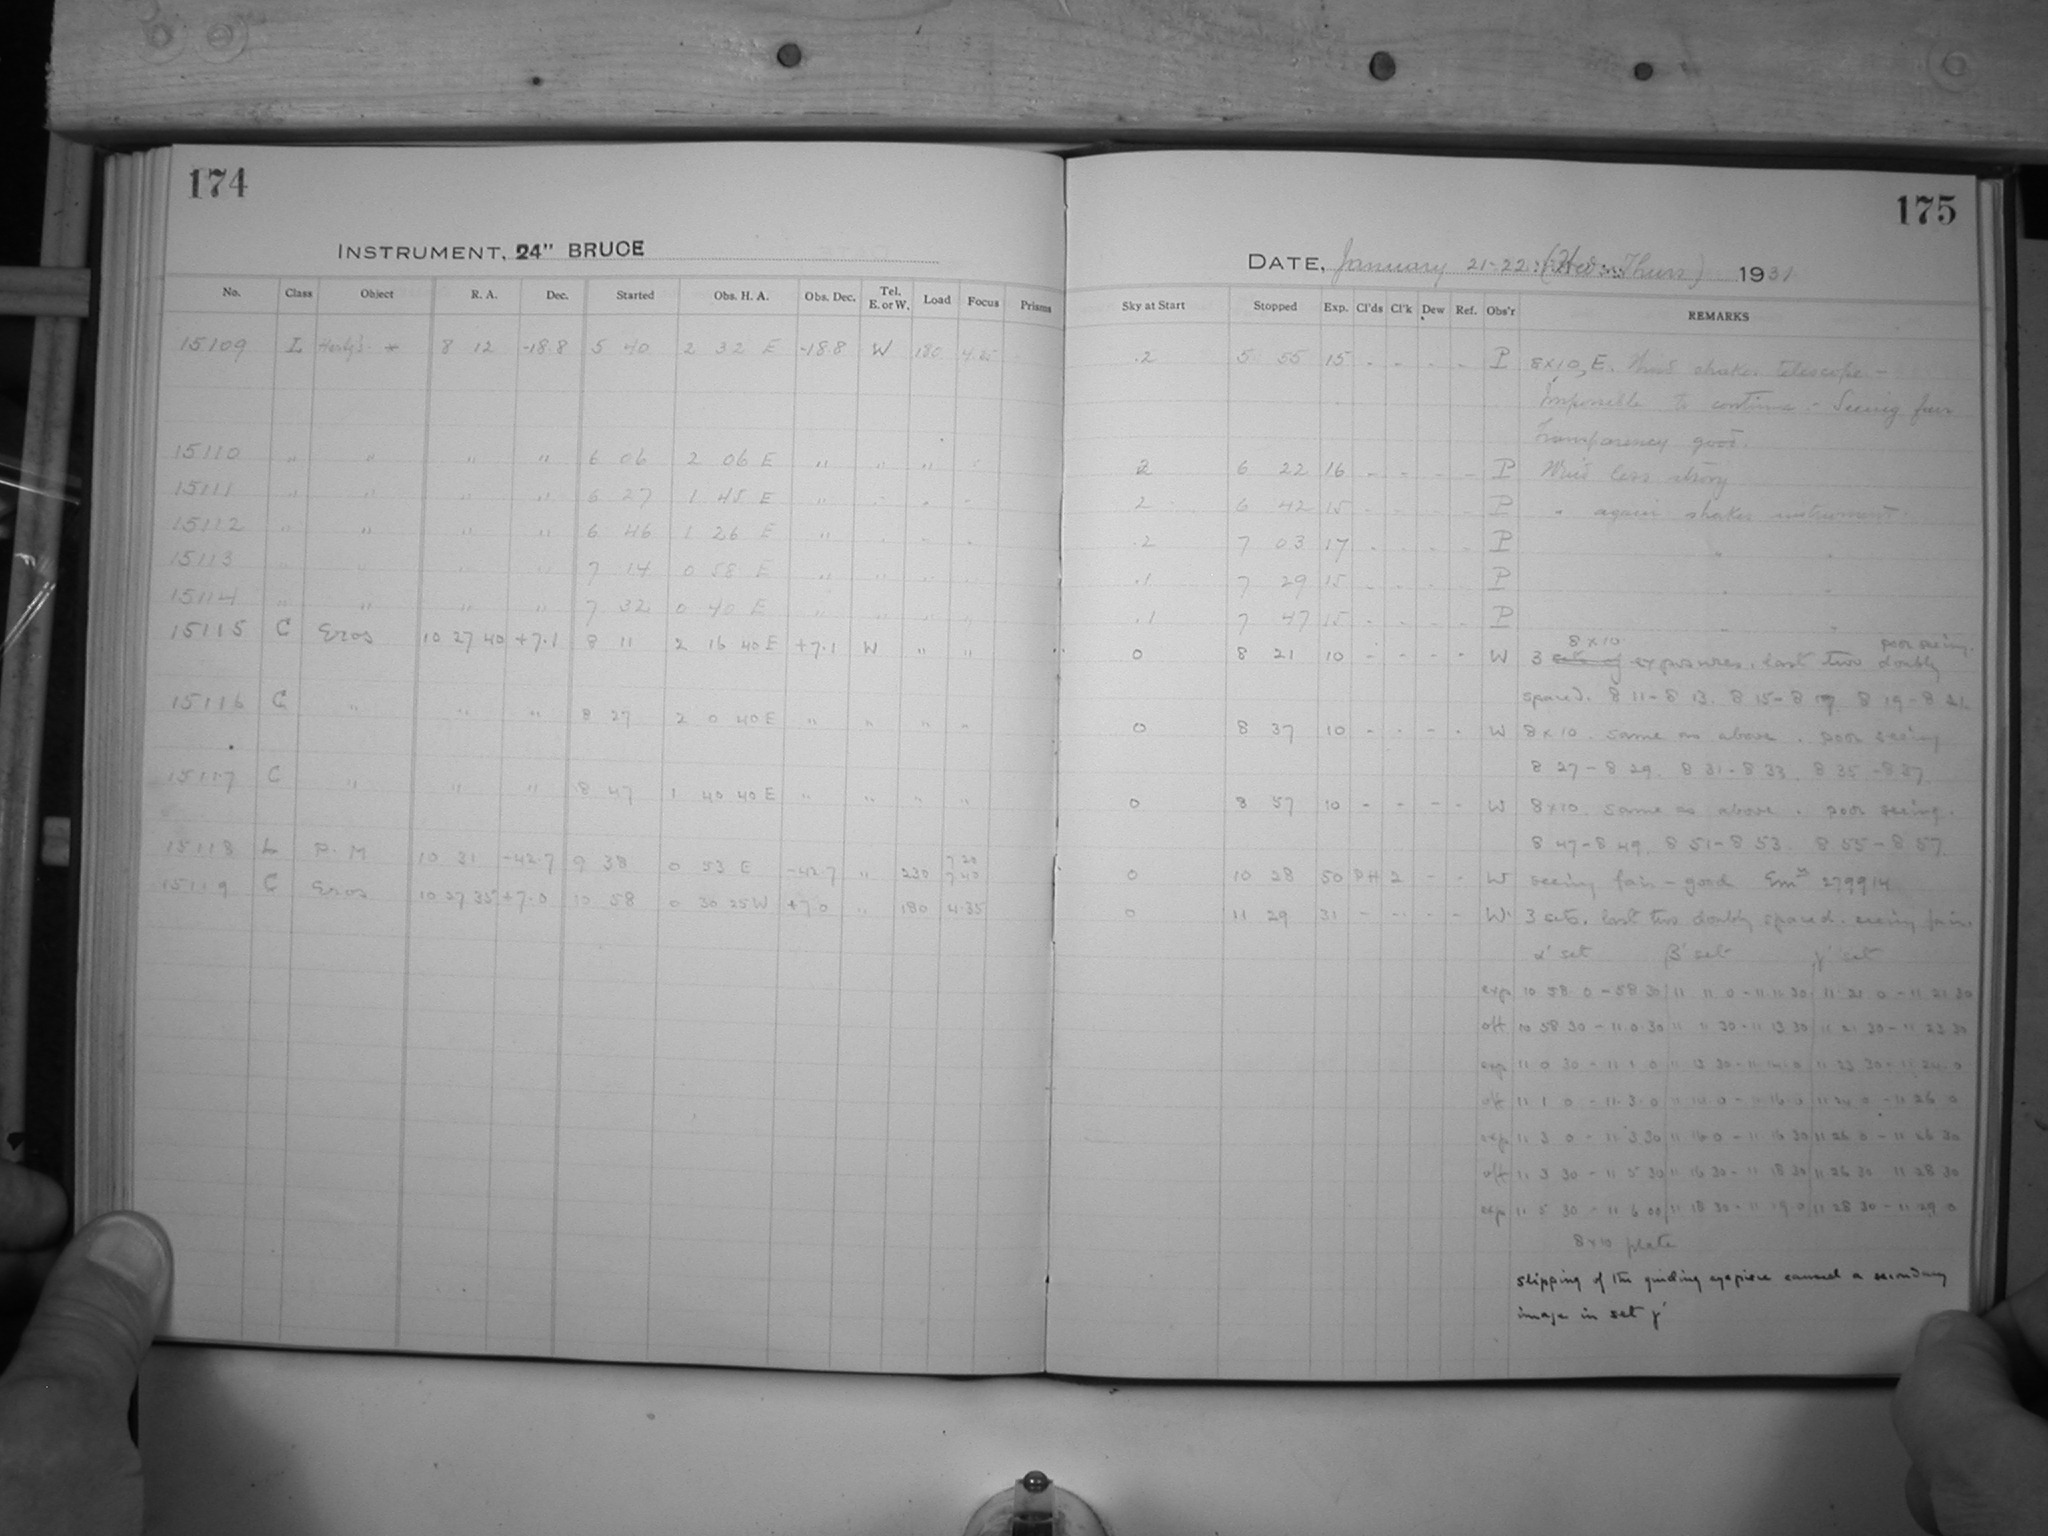 174
INSTRUMENT, 24" BRUCE
No. Class Object R. A. Dec. Started Obs. H. A. Obs. Dec. Tel. E. or W. Load Focus Prisms
15109 L * 8 12 -18.8 5 40 2 32 E -18.8 W 180
15110 " " " " 6 06 2 06 E " " " "
15111 " " " " 6 27 1 45 E " " " "
15112 " " " " 6 46 1 26 E " " " "
15113 " " " " 7 14 0 58 E " " " "
15114 " " " " 7 32 0 40 E " " " "
15115 C Eros 10 27 40 +7.1 8 11 2 16 40 E +7.1 W " "
15116 C " " " 8 27 2 0 40 E " " " "
15117 C " " " 8 47 1 40 40 E " " " "
15118 L P. M 10 31 -42.7 9 38 0 53 E -42.7 " 230 7.20 7.40
15119 C Eros 10 27 35 +7.0 10 58 0 30 25 W +7.0 " 180 4.35
175
DATE, January 21-22 (Wed - Thurs) 1931
Sky at Start Stopped Exp. Cl'ds Cl'k Dew Ref. Obs'r REMARKS
.2 5 55 15 - - - - P 8x10, E. Wind shakes telescope -
Impossible to continue - Seeing fair
Transparency good.
2 6 22 16 - - - - P Wind less strong
2 6 42 15 - - - - P " again shakes instrument.
.2 7 03 17 - - - - P " "
.1 7 29 15 - - - - P " "
.1 7 47 15 - - - - P " "
8x10 poor seeing.
0 8 21 10 - - - - W 3 sets of exposures. last two doubly
spaced. 8 11 - 8 13. 8 15 - 8 17. 8 19 - 8 21.
0 8 37 10 - - - - W 8x10. same as above. poor seeing
8 27 - 8 29. 8 31 - 8 33. 8 35 - 8 37.
0 8 57 10 - - - - W 8x10. same as above. poor seeing.
8 47 - 8 49. 8 51 - 8 53. 8 55 - 8 57.
0 10 28 50 PH 2 - - W seeing fair - good 279914
0 11 29 31 - - - - W 3 sets. last two doubly spaced. seeing fair.
α' set β' set γ' set
exp 10 58 0 - 58 30 11 11 0 - 11 11 30 11 21 0 - 11 21 30
off 10 58 30 - 11 0 30 11 11 30 - 11 13 30 11 21 30 - 11 23 30
exp 11 0 30 - 11 1 0 11 13 30 - 11 14 0 11 23 30 - 11 24 0
off 11 1 0 - 11 3 0 11 14 0 - 11 16 0 11 24 0 - 11 26 0
exp 11 3 0 - 11 3 30 11 16 0 - 11 16 30 11 26 0 - 11 26 30
off 11 3 30 - 11 5 30 11 16 30 - 11 18 30 11 26 30 11 28 30
exp 11 5 30 - 11 6 00 11 18 30 - 11 19 0 11 28 30 - 11 29 0
8x10 plate
slipping of the guiding eyepiece caused a secondary
image in set γ'